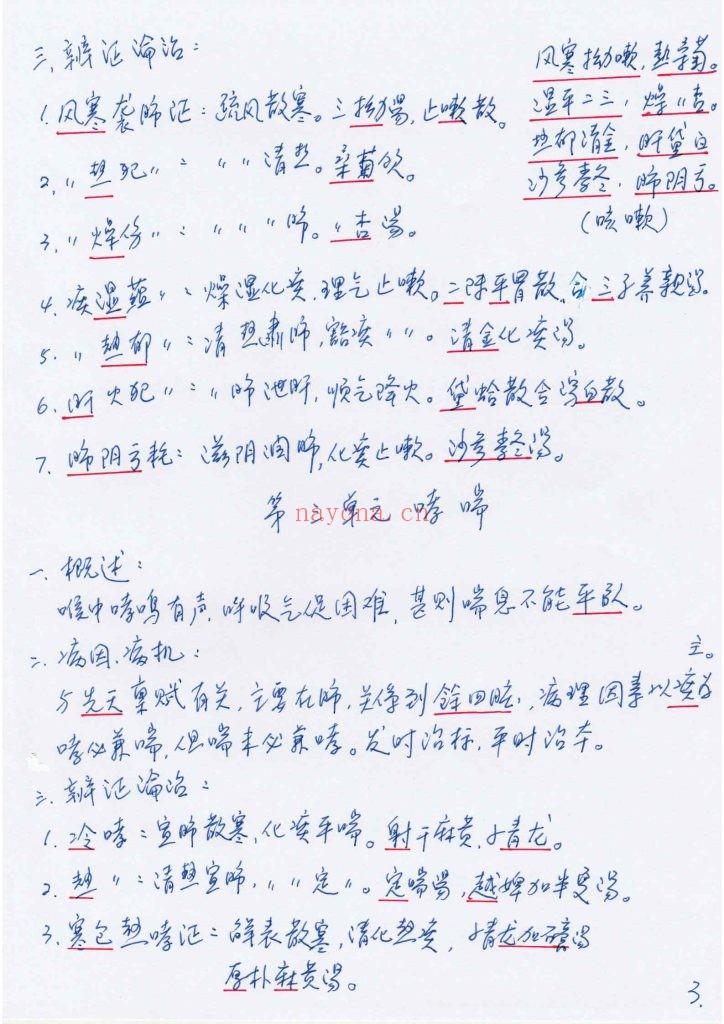 三、辨证论治：
风寒拗嗽，热桑菊。
1. 风寒袭肺证：疏风散寒。三拗汤，止嗽散。
湿平二三，燥〃杏。
热郁清金，肝黛白
2. 〃热犯〃：〃〃清热。桑菊饮。
沙参麦冬，肺阴亏。
（咳嗽）
3. 〃燥伤〃：〃〃〃肺。〃杏汤。
4. 痰湿蕴〃：燥湿化痰，理气止嗽。二陈平胃散，合三子养亲汤。
5. 〃热郁〃：清热肃肺，豁痰〃〃。清金化痰汤。
6. 肝火犯〃：〃肺泄肝，顺气降火。黛蛤散合泻白散。
7. 肺阴亏耗：滋阴润肺，化痰止嗽。沙参麦冬汤。
第三单元 哮喘
nayona.cn
一、概述：
喉中哮鸣有声，呼吸气促困难，甚则喘息不能平卧。
二、病因、病机：
主。
与先天禀赋有关，主要在肺，关系到馀四脏，病理因素以痰为
哮必兼喘，但喘未必兼哮。发时治标，平时治本。
三、辨证论治：
1. 冷哮：宣肺散寒，化痰平喘。射干麻黄，小青龙。
2. 热〃：清热宣肺，〃〃定〃。定喘汤，越婢加半夏汤。
3. 寒包热哮证：解表散寒，清化热痰，小青龙加石膏汤
厚朴麻黄汤。
3.